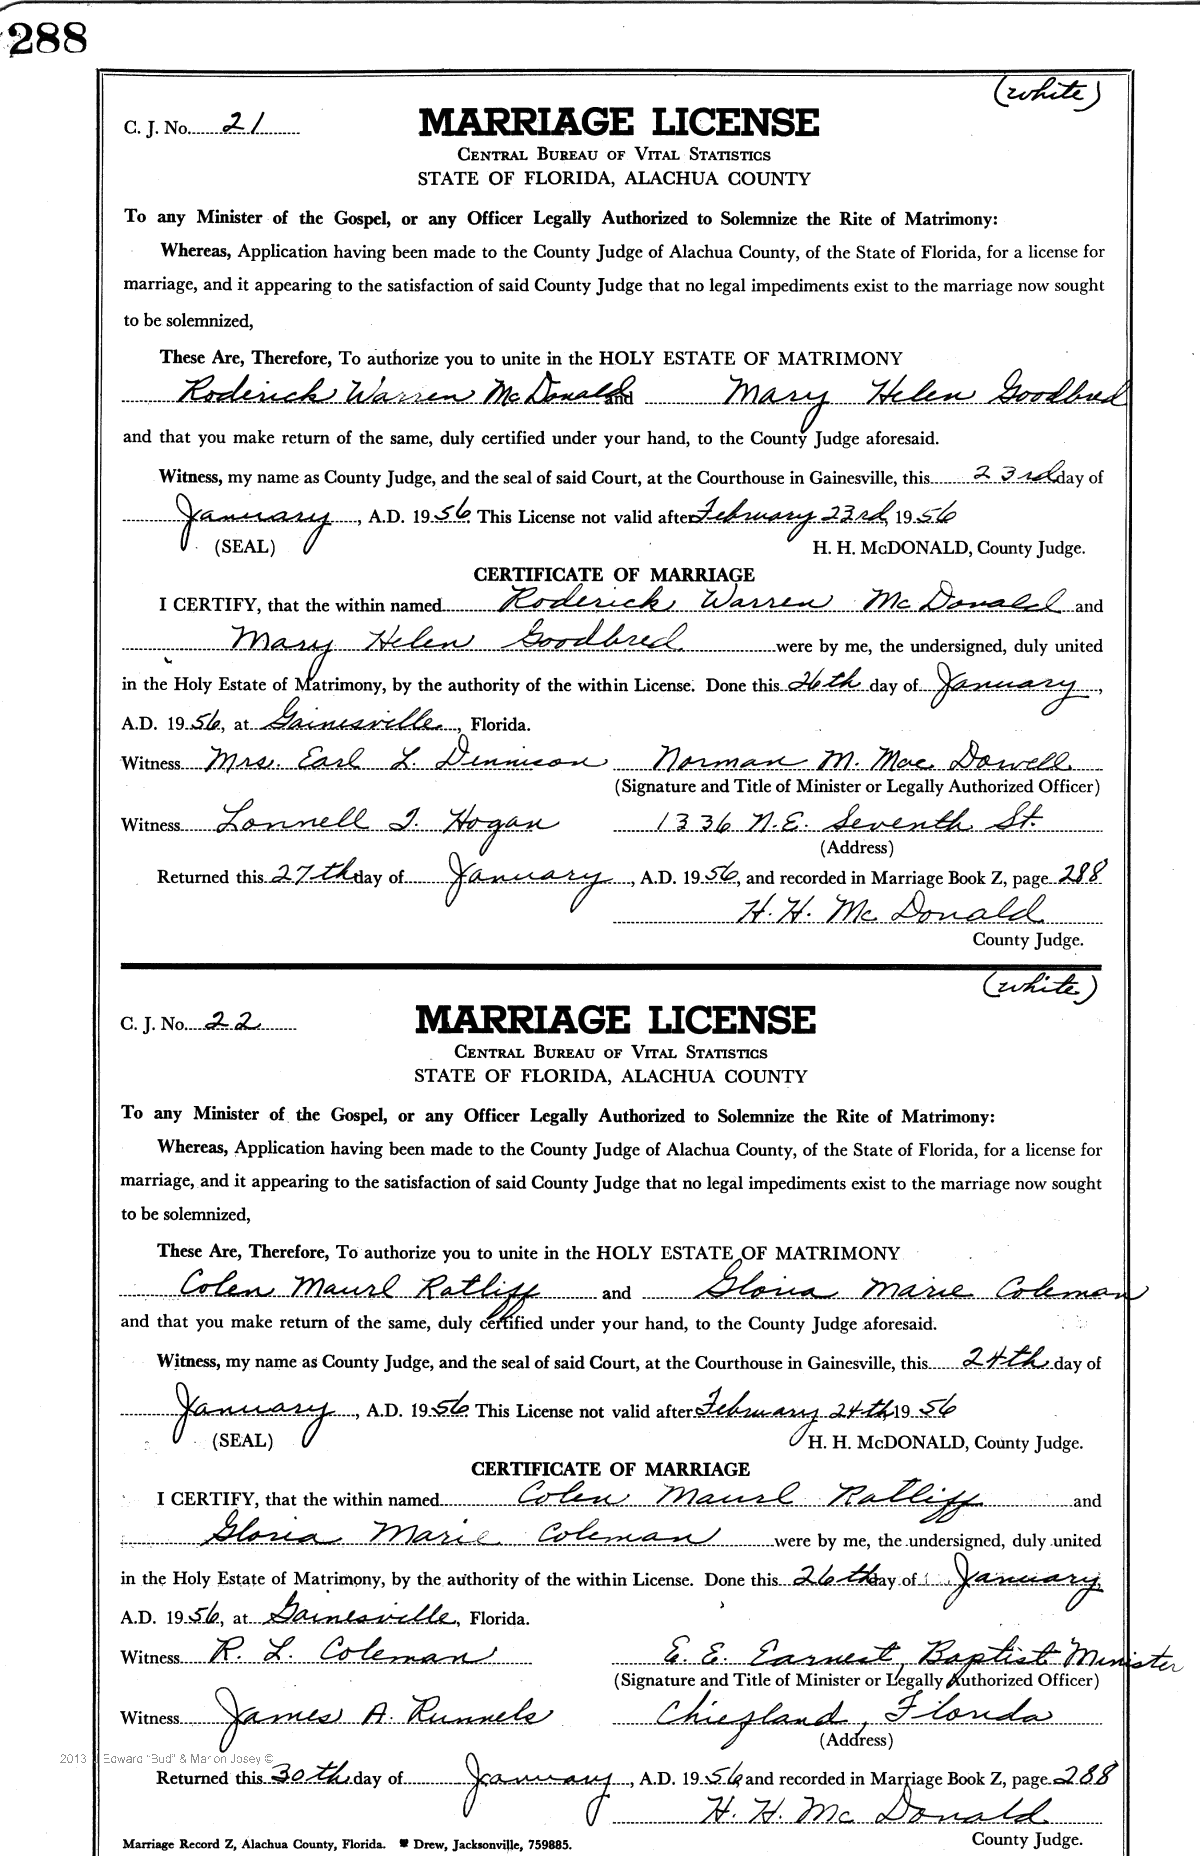 288
(white)
C. J. No. 21
MARRIAGE LICENSE
CENTRAL BUREAU OF VITAL STATISTICS
STATE OF FLORIDA, ALACHUA COUNTY
To any Minister of the Gospel, or any Officer Legally Authorized to Solemnize the Rite of Matrimony:
Whereas, Application having been made to the County Judge of Alachua County, of the State of Florida, for a license for
marriage, and it appearing to the satisfaction of said County Judge that no legal impediments exist to the marriage now sought
to be solemnized,
These Are, Therefore, To authorize you to unite in the HOLY ESTATE OF MATRIMONY
Roderick Warren McDonald and Mary Helen Goodbred
and that you make return of the same, duly certified under your hand, to the County Judge aforesaid.
Witness, my name as County Judge, and the seal of said Court, at the Courthouse in Gainesville, this 23rd day of
January, A.D. 1956. This License not valid after February 23rd, 1956
(SEAL) H. H. McDONALD, County Judge.
CERTIFICATE OF MARRIAGE
I CERTIFY, that the within named Roderick Warren McDonald and
Mary Helen Goodbred were by me, the undersigned, duly united
in the Holy Estate of Matrimony, by the authority of the within License. Done this 26th day of January,
A.D. 1956, at Gainesville, Florida.
Witness Mrs. Earl L. Dennison Norman M. Mac Dowell
(Signature and Title of Minister or Legally Authorized Officer)
Witness Lonnell I. Hogan 1336 N.E. Seventh St.
(Address)
Returned this 27th day of January, A.D. 1956, and recorded in Marriage Book Z, page 288
H. H. McDonald
County Judge.
(white)
C. J. No. 22
MARRIAGE LICENSE
CENTRAL BUREAU OF VITAL STATISTICS
STATE OF FLORIDA, ALACHUA COUNTY
To any Minister of the Gospel, or any Officer Legally Authorized to Solemnize the Rite of Matrimony:
Whereas, Application having been made to the County Judge of Alachua County, of the State of Florida, for a license for
marriage, and it appearing to the satisfaction of said County Judge that no legal impediments exist to the marriage now sought
to be solemnized,
These Are, Therefore, To authorize you to unite in the HOLY ESTATE OF MATRIMONY
Colen Maurl Ratliff and Gloria Marie Coleman
and that you make return of the same, duly certified under your hand, to the County Judge aforesaid.
Witness, my name as County Judge, and the seal of said Court, at the Courthouse in Gainesville, this 24th day of
January, A.D. 1956. This License not valid after February 24th, 1956
(SEAL) H. H. McDONALD, County Judge.
CERTIFICATE OF MARRIAGE
I CERTIFY, that the within named Colen Maurl Ratliff and
Gloria Marie Coleman were by me, the undersigned, duly united
in the Holy Estate of Matrimony, by the authority of the within License. Done this 26th day of January,
A.D. 1956, at Gainesville, Florida.
Witness R. L. Coleman E. E. Earnest, Baptist Minister
(Signature and Title of Minister or Legally Authorized Officer)
Witness James A. Runnels Chiefland, Florida
(Address)
2013 J Edward "Bud" & Marion Josey ©
Returned this 30th day of January, A.D. 1956 and recorded in Marriage Book Z, page 288
H. H. McDonald
County Judge.
Marriage Record Z, Alachua County, Florida. Drew, Jacksonville, 759885.